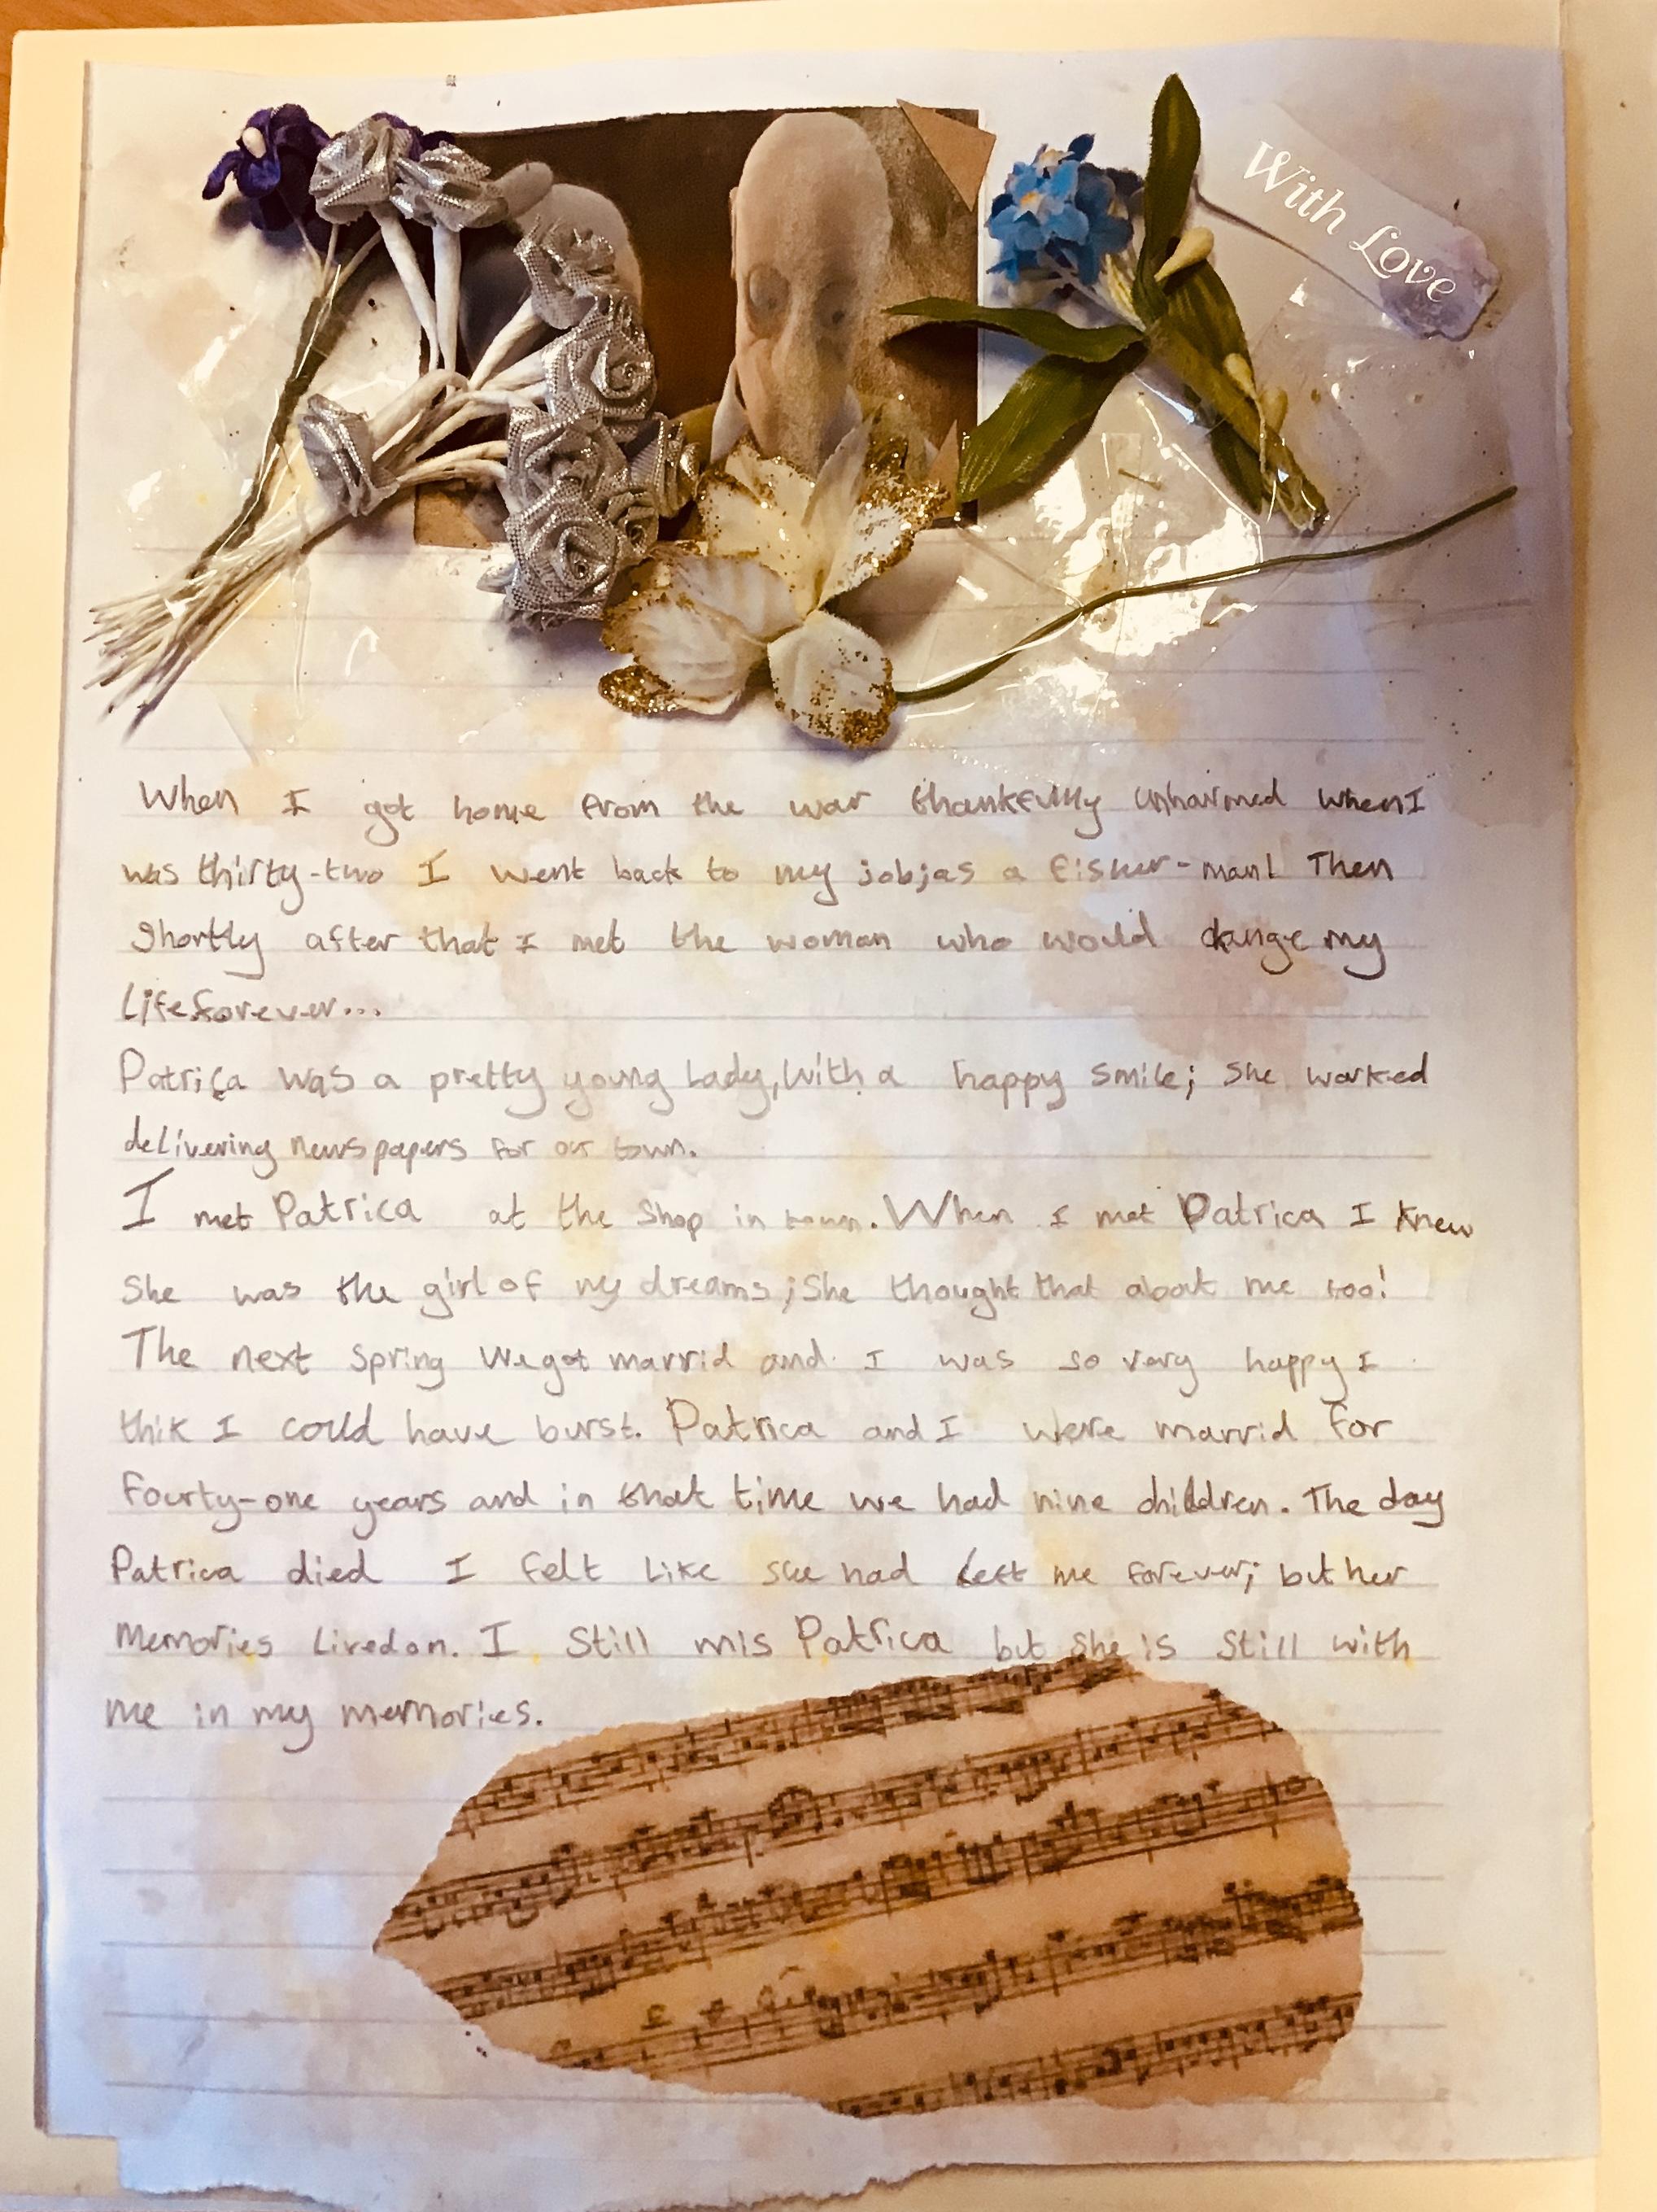 With Love
When I got home from the war thankfully unharmed when I
was thirty-two I went back to my job; as a fisher-man! Then
shortly after that I met the woman who would change my
life forever...
Patrica was a pretty young lady, with a happy smile; she worked
delivering newspapers for our town.
I met Patrica at the shop in town. When I met Patrica I knew
she was the girl of my dreams; She thought that about me too!
The next spring we got marrid and I was so very happy I
thik I could have burst. Patrica and I were marrid for
fourty-one years and in that time we had nine children. The day
Patrica died I felt like she had left me forever; but her
memories lived on. I still mis Patrica but she is still with
me in my memories.